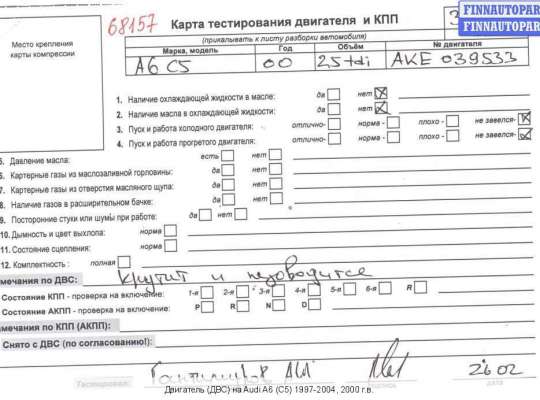 68157
Карта тестирования двигателя и КПП
FINNAUTOPAR
FINNAUTOPAR
(прикалывать к листу разборки автомобиля)
Место крепления
карты компрессии
Марка, модель Год Объём № двигателя
A6 C5 00 25tdi AKE 039533
1. Наличие охлаждающей жидкости в масле: да нет
2. Наличие масла в охлаждающей жидкости: да нет
3. Пуск и работа холодного двигателя: отлично- норма - плохо - не завелся-
4. Пуск и работа прогретого двигателя: отлично- норма - плохо - не завелся-
5. Давление масла: есть нет
6. Картерные газы из маслозаливной горловины: да нет
7. Картерные газы из отверстия масляного щупа: да нет
8. Наличие газов в расширительном бачке: да нет
9. Посторонние стуки или шумы при работе: да нет
10. Дымность и цвет выхлопа: норма
11. Состояние сцепления: норма
12. Комплектность : полная
мечания по ДВС: крутит и не заводится
Состояние КПП - проверка на включение: 1-я 2-я 3-я 4-я 5-я 6-я R
Состояние АКПП - проверка на включение: P R N D
мечания по КПП (АКПП):
Снято с ДВС (по согласованию!):
26 02
Тестировал: дата
Двигатель (ДВС) на Audi A6 (C5) 1997-2004, 2000 г.в.